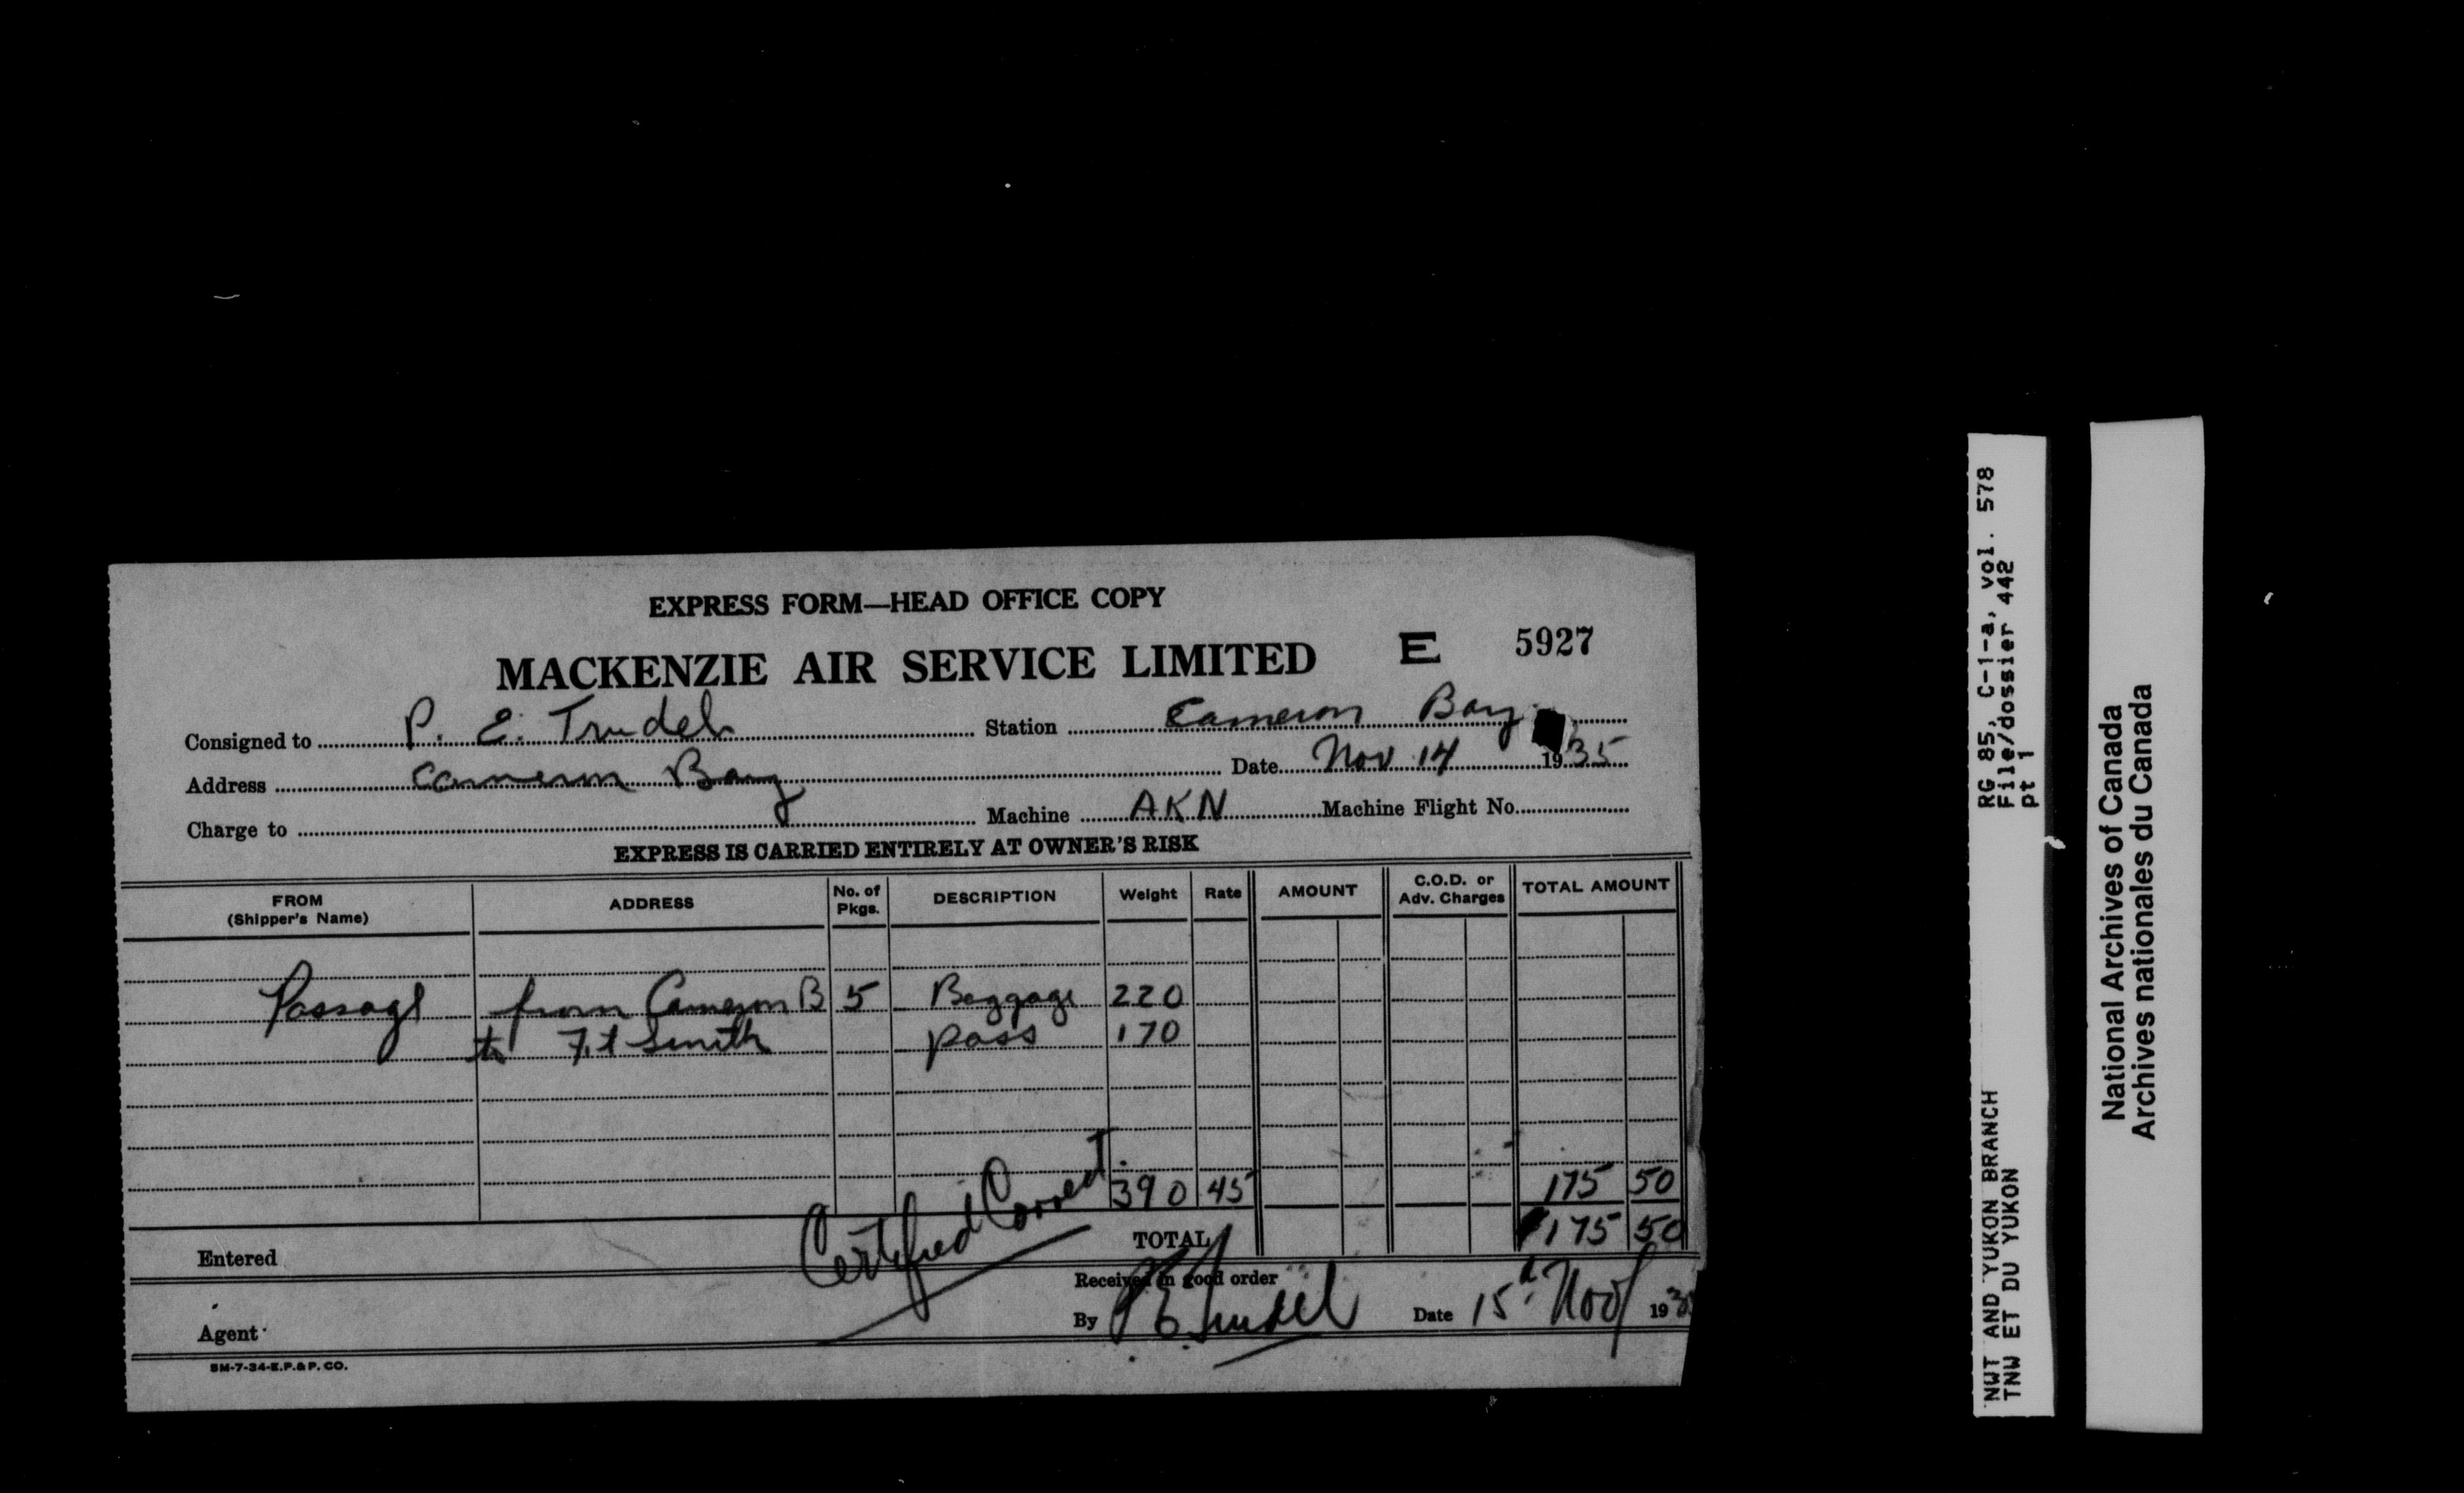 EXPRESS FORM—HEAD OFFICE COPY
MACKENZIE AIR SERVICE LIMITED E 5927
Consigned to P. E. Trudel Station Cameron Bay
Address Cameron Bay Date Nov 14 1935
Charge to Machine AKN Machine Flight No.
EXPRESS IS CARRIED ENTIRELY AT OWNER'S RISK
FROM (Shipper's Name) ADDRESS No. of Pkgs. DESCRIPTION Weight Rate AMOUNT C.O.D. or Adv. Charges TOTAL AMOUNT
Passage from Cameron B 5 Baggage 220
to Ft Smith pass 170
390 45 175 50
Certified Correct
TOTAL 175 50
Entered
Received in good order
Agent By P E Trudel Date 15th Nov 1935
5M-7-34-E.P.&P. CO.
RG 85, C-1-a, vol. 578
File/dossier 442
pt 1
NWT AND YUKON BRANCH
TNW ET DU YUKON
National Archives of Canada
Archives nationales du Canada